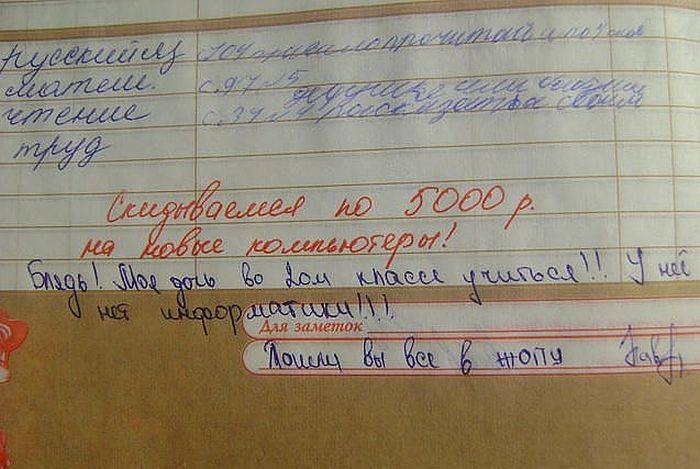 русский яз
матем. с.97 15
чтение с.34
труд
Скидываемся по 5000 р.
на новые компьютеры!
Блядь! Моя дочь во 2ом классе учиться!!! У неё
нет информатики!!!
Для заметок
Пошли вы все в жопу